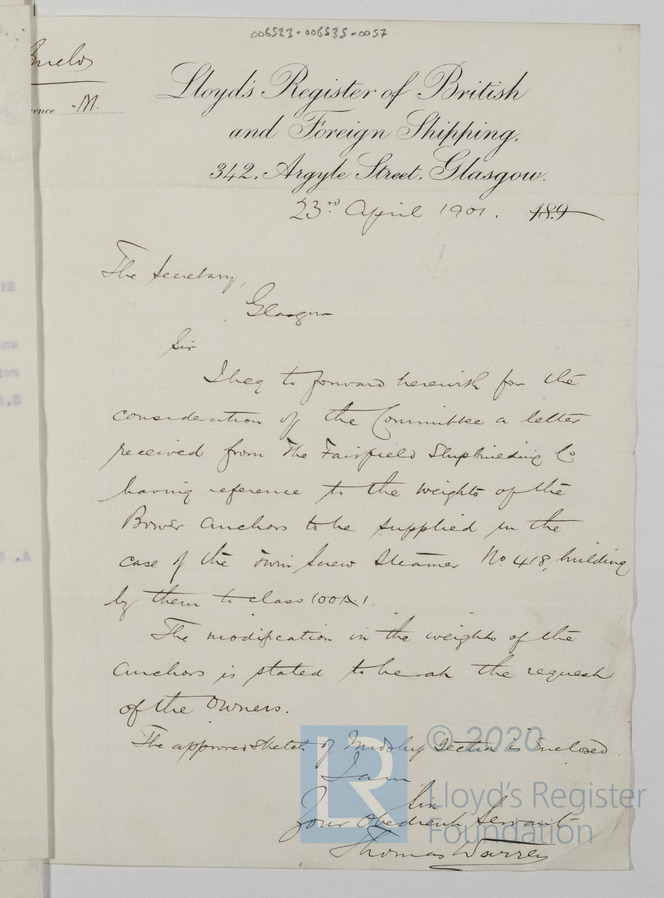 006523-006535-0057
Lloyd's Register of British
and Foreign Shipping.
342, Argyle Street, Glasgow.
23rd April 1901. 189
M.
The Secretary,
Glasgow
Sir
I beg to forward herewith for the
consideration of the Committee a letter
received from The Fairfield Shipbuilding Co
having reference to the weights of the
Bower Anchors to be supplied in the
case of the Twin Screw Steamer No. 418, building
by them to class 100A1.
The modification in the weights of the
Anchors is stated to be at the request
of the Owners.
The approved sketch of Midship Section is inclosed
I am
Sir
Your Obedient Servant
Thomas Warren
© 2020
LR Lloyd's Register
Foundation